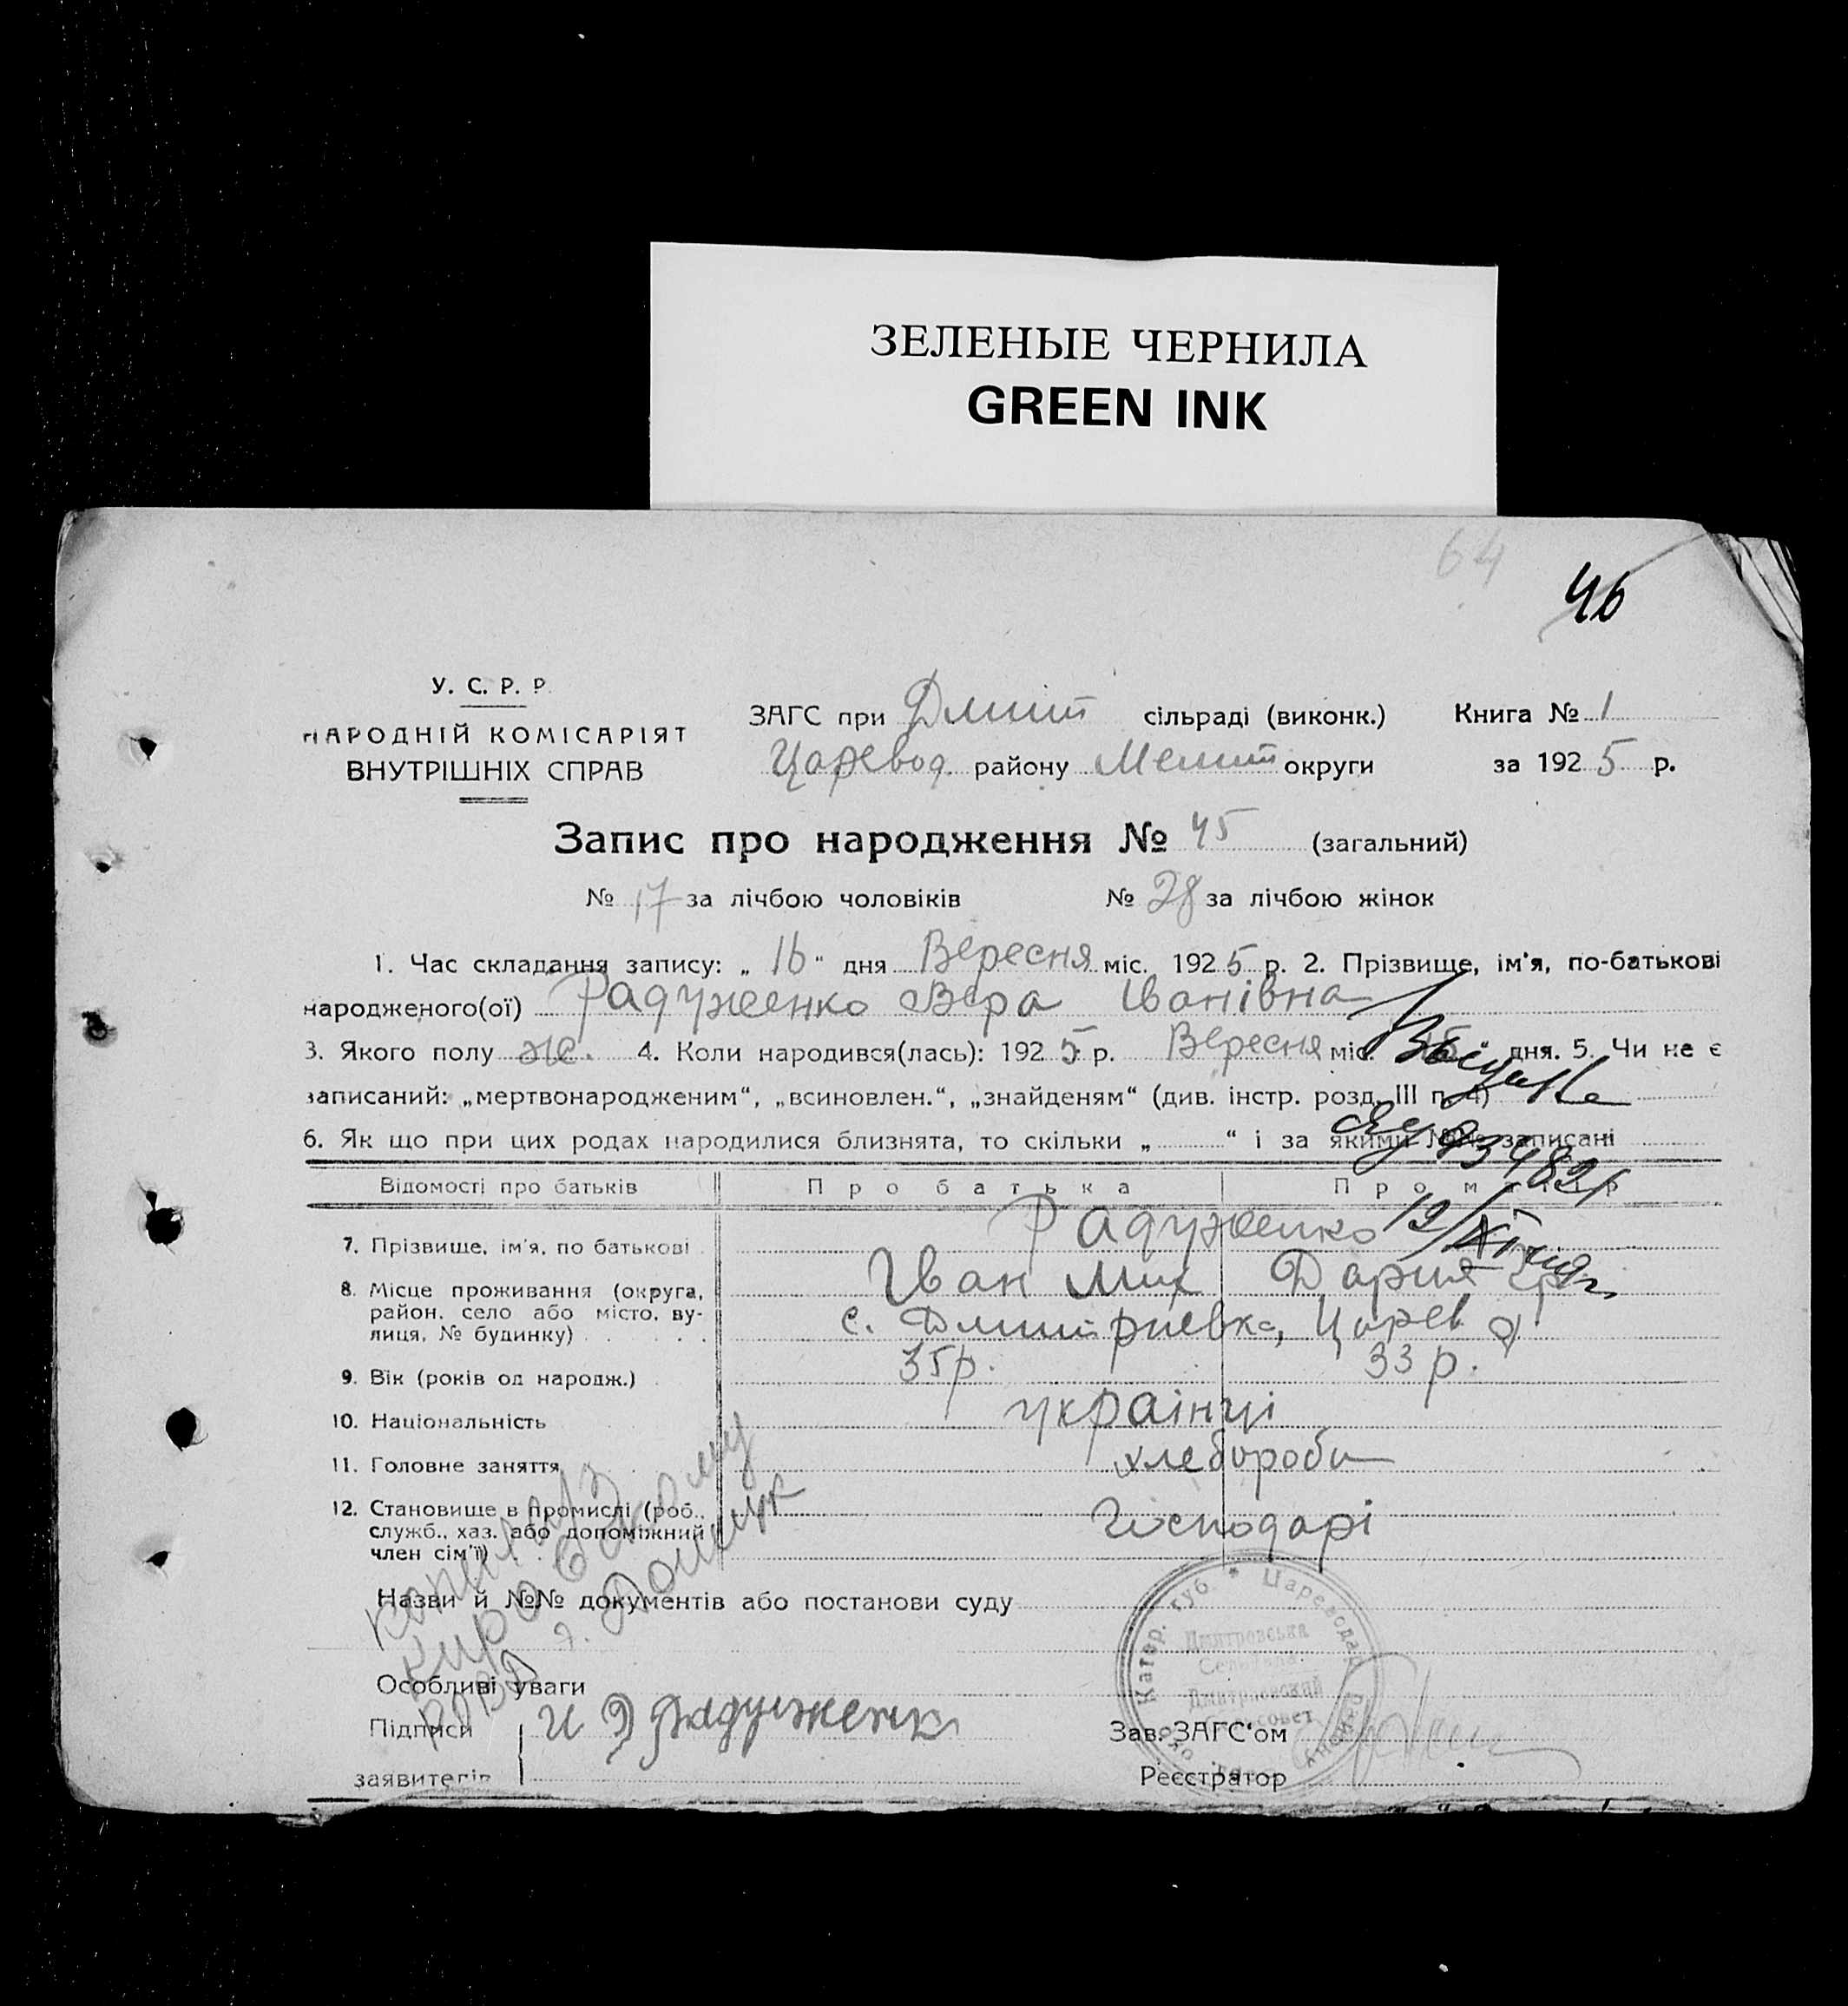 ЗЕЛЕНЫЕ ЧЕРНИЛА
GREEN INK
64
46
У. С. Р. Р.
НАРОДНІЙ КОМІСАРІЯТ
ВНУТРІШНІХ СПРАВ
ЗАГС при Дмит сільраді (виконк.) Книга № 1
Царевод. району Мелит округи за 1925 р.
Запис про народження № 45 (загальний)
№ 17 за лічбою чоловіків № 28 за лічбою жінок
1. Час складання запису: „ 16 “ дня Вересня міс. 1925 р. 2. Прізвище, ім'я, по-батькові
народженого(ої) Радуженко Вера Іванівна
3. Якого полу ж. 4. Коли народився(лась): 1925 р. Вересня міс. 15 “ дня. 5. Чи не є
записаний: „мертвонародженим“, „всиновлен.“, „знайденям“ (див. інстр. розд. III п. 4)
6. Як що при цих родах народилися близнята, то скільки „ “ і за якими №№ записані
934821
Відомості про батьків Про батька Про матір
7. Прізвище, ім'я, по батькові Радуженко
19/XI
8. Місце проживання (округа, Іван Мих Дария Гр
район, село або місто, ву- с. Дмитриевка, Царев
лиця, № будинку)
9. Вік (років од народж.) 35 р. 33 р.
10. Національність українці
11. Головне заняття хлебороби
12. Становище в промислі (роб., Господарі
служб., хаз. або допоміжний
член сім'ї)
Назви й №№ документів або постанови суду
Особливі уваги
Підписи И Д Радуженк
заявителів
Зав. ЗАГС'ом
Реєстратор
Катер. губ. * Царевода
Дмитровська
Дмитриевский
Сельсовет